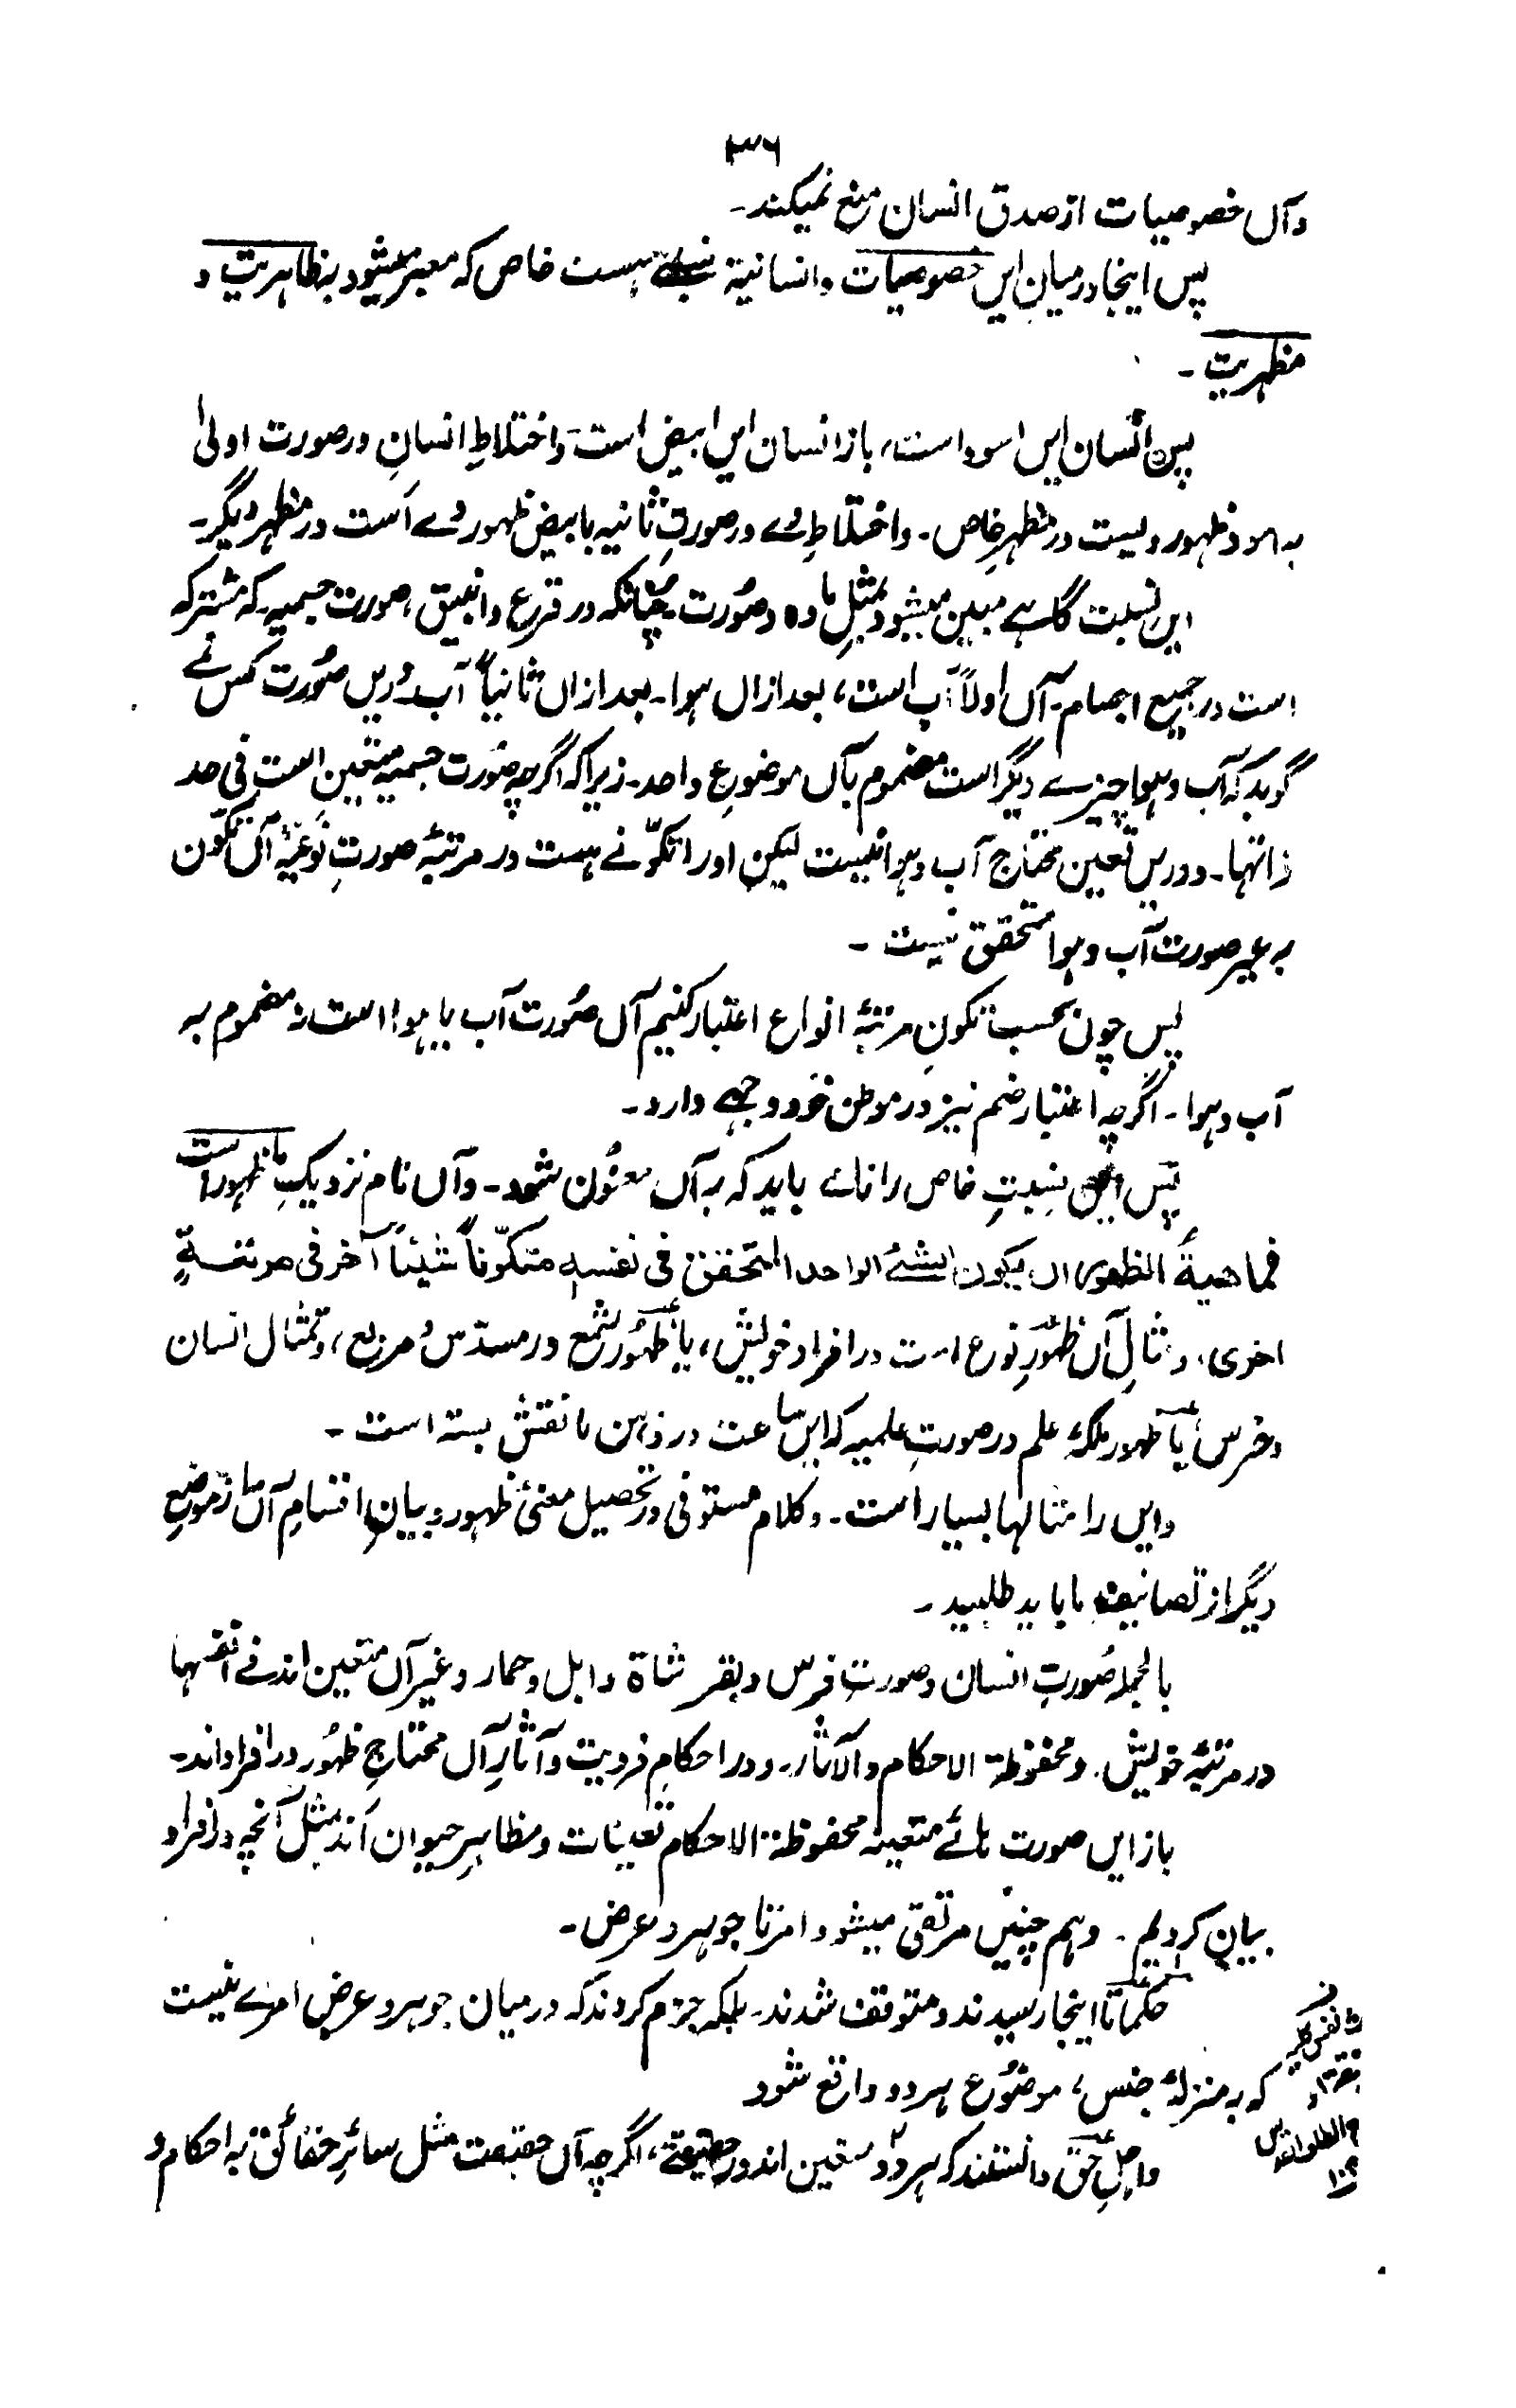 ۳۶
وآں خصوصیات از صدق انسان منع نمیکند۔
پس اینجا درمیان ایں خصوصیات وانسانیة نسبتے ہست خاص کہ معبر میشود بظاہریت و
مظہریت۔
پس انسان ایں اسود است، باز انسان ایں ابیض است۔ واختلاطِ انسان درصورت اولیٰ
ظہور ویست در مظہرِ خاص۔ واختلاطِ وے درصورتِ ثانیہ بابیض ظہور وے است در مظہر دیگر۔
ایں نسبت گاہے مبین میشود بمثلِ مادہ وصُورت۔ چنانکہ در قرع وانبیق، صورت جسمیہ کہ مشترکہ
است در جمیع اجسام۔ آں اولاً آب است، بعد ازاں ہوا۔ بعد ازاں ثانیاً آب۔ دریں صُورت کس نے
گوید کہ آب وہوا چیزے دیگر است مضموم بآں موضوعِ واحد۔ زیرا کہ اگرچہ صُورت جسمیہ متعین است فی حد
ذاتہا۔ ودریں تعین محتاج آب وہوا نیست لیکن اورا تکوّنے ہست در مرتبۂ صورتِ نوعیہ آں تکون
بہ غیر صورت آب وہوا متحقق نیست۔
پس چون بحسب تکونِ مرتبۂ انواع اعتبار کنیم آں صُورت آب یا ہوا است نہ مضموم بہ
آب وہوا۔ اگرچہ اعتبار ضم نیز در موطن خود وجہے دارد۔
پس ایں نسبتِ خاص را نامے باید کہ بہ آں معنون شود۔ وآں نام نزدیکِ ما ظہور است
فماهیةُ الظهور ان یکون الشئ الواحد المتحقق فی نفسه متکوّناً شیئاً آخر فی مرتبةٍ
اخری، ومثالِ آں ظہورِ نوع است در افراد خویش، یا ظہُور شمع در مسدّس ومربع، وتمثال انسان
وفرس یا ظہور ملکۂ علم در صورتِ علمیہ کہ ایں ساعت در ذہن ما نقش بستہ است۔
وایں را مثالہا بسیار است۔ وکلام مستوفی در تحصیل معنیٔ ظہور وبیانِ اقسامِ آں از مواضعِ
دیگر از تصانیف ما باید طلبید۔
بالجملہ صُورتِ انسان وصورتِ فرس وبقر شاة وابل وحمار وغیر آں متعین اند فے انفسہا
در مرتبۂ خویش۔ ومحفوظة الاحکام والآثار۔ ودر احکامِ فردیت وآثارِ آں محتاجِ ظہُور در افراد اند۔
باز ایں صورت ہائے متعینہ محفوظة الاحکام تعینات ومظاہرِ حیوان اند بمثل آنچہ در افراد
بیان کردیم۔ وہم چنیں مرتقی میشود امر تا جوہر وعرض۔
حکما تا اینجا رسیدند ومتوقف شدند۔ بلکہ جزم کردند کہ درمیان جوہر وعرض امرے نیست
کہ بہ منزلۂ جنس، موضوع ہر دو واقع شود
واہلِ حق دانستند کہ ہر دو متعین اند در حقیقتے، اگرچہ آں حقیقت مثل سائرِ حقائق بہ احکام و
نفس کلیہ